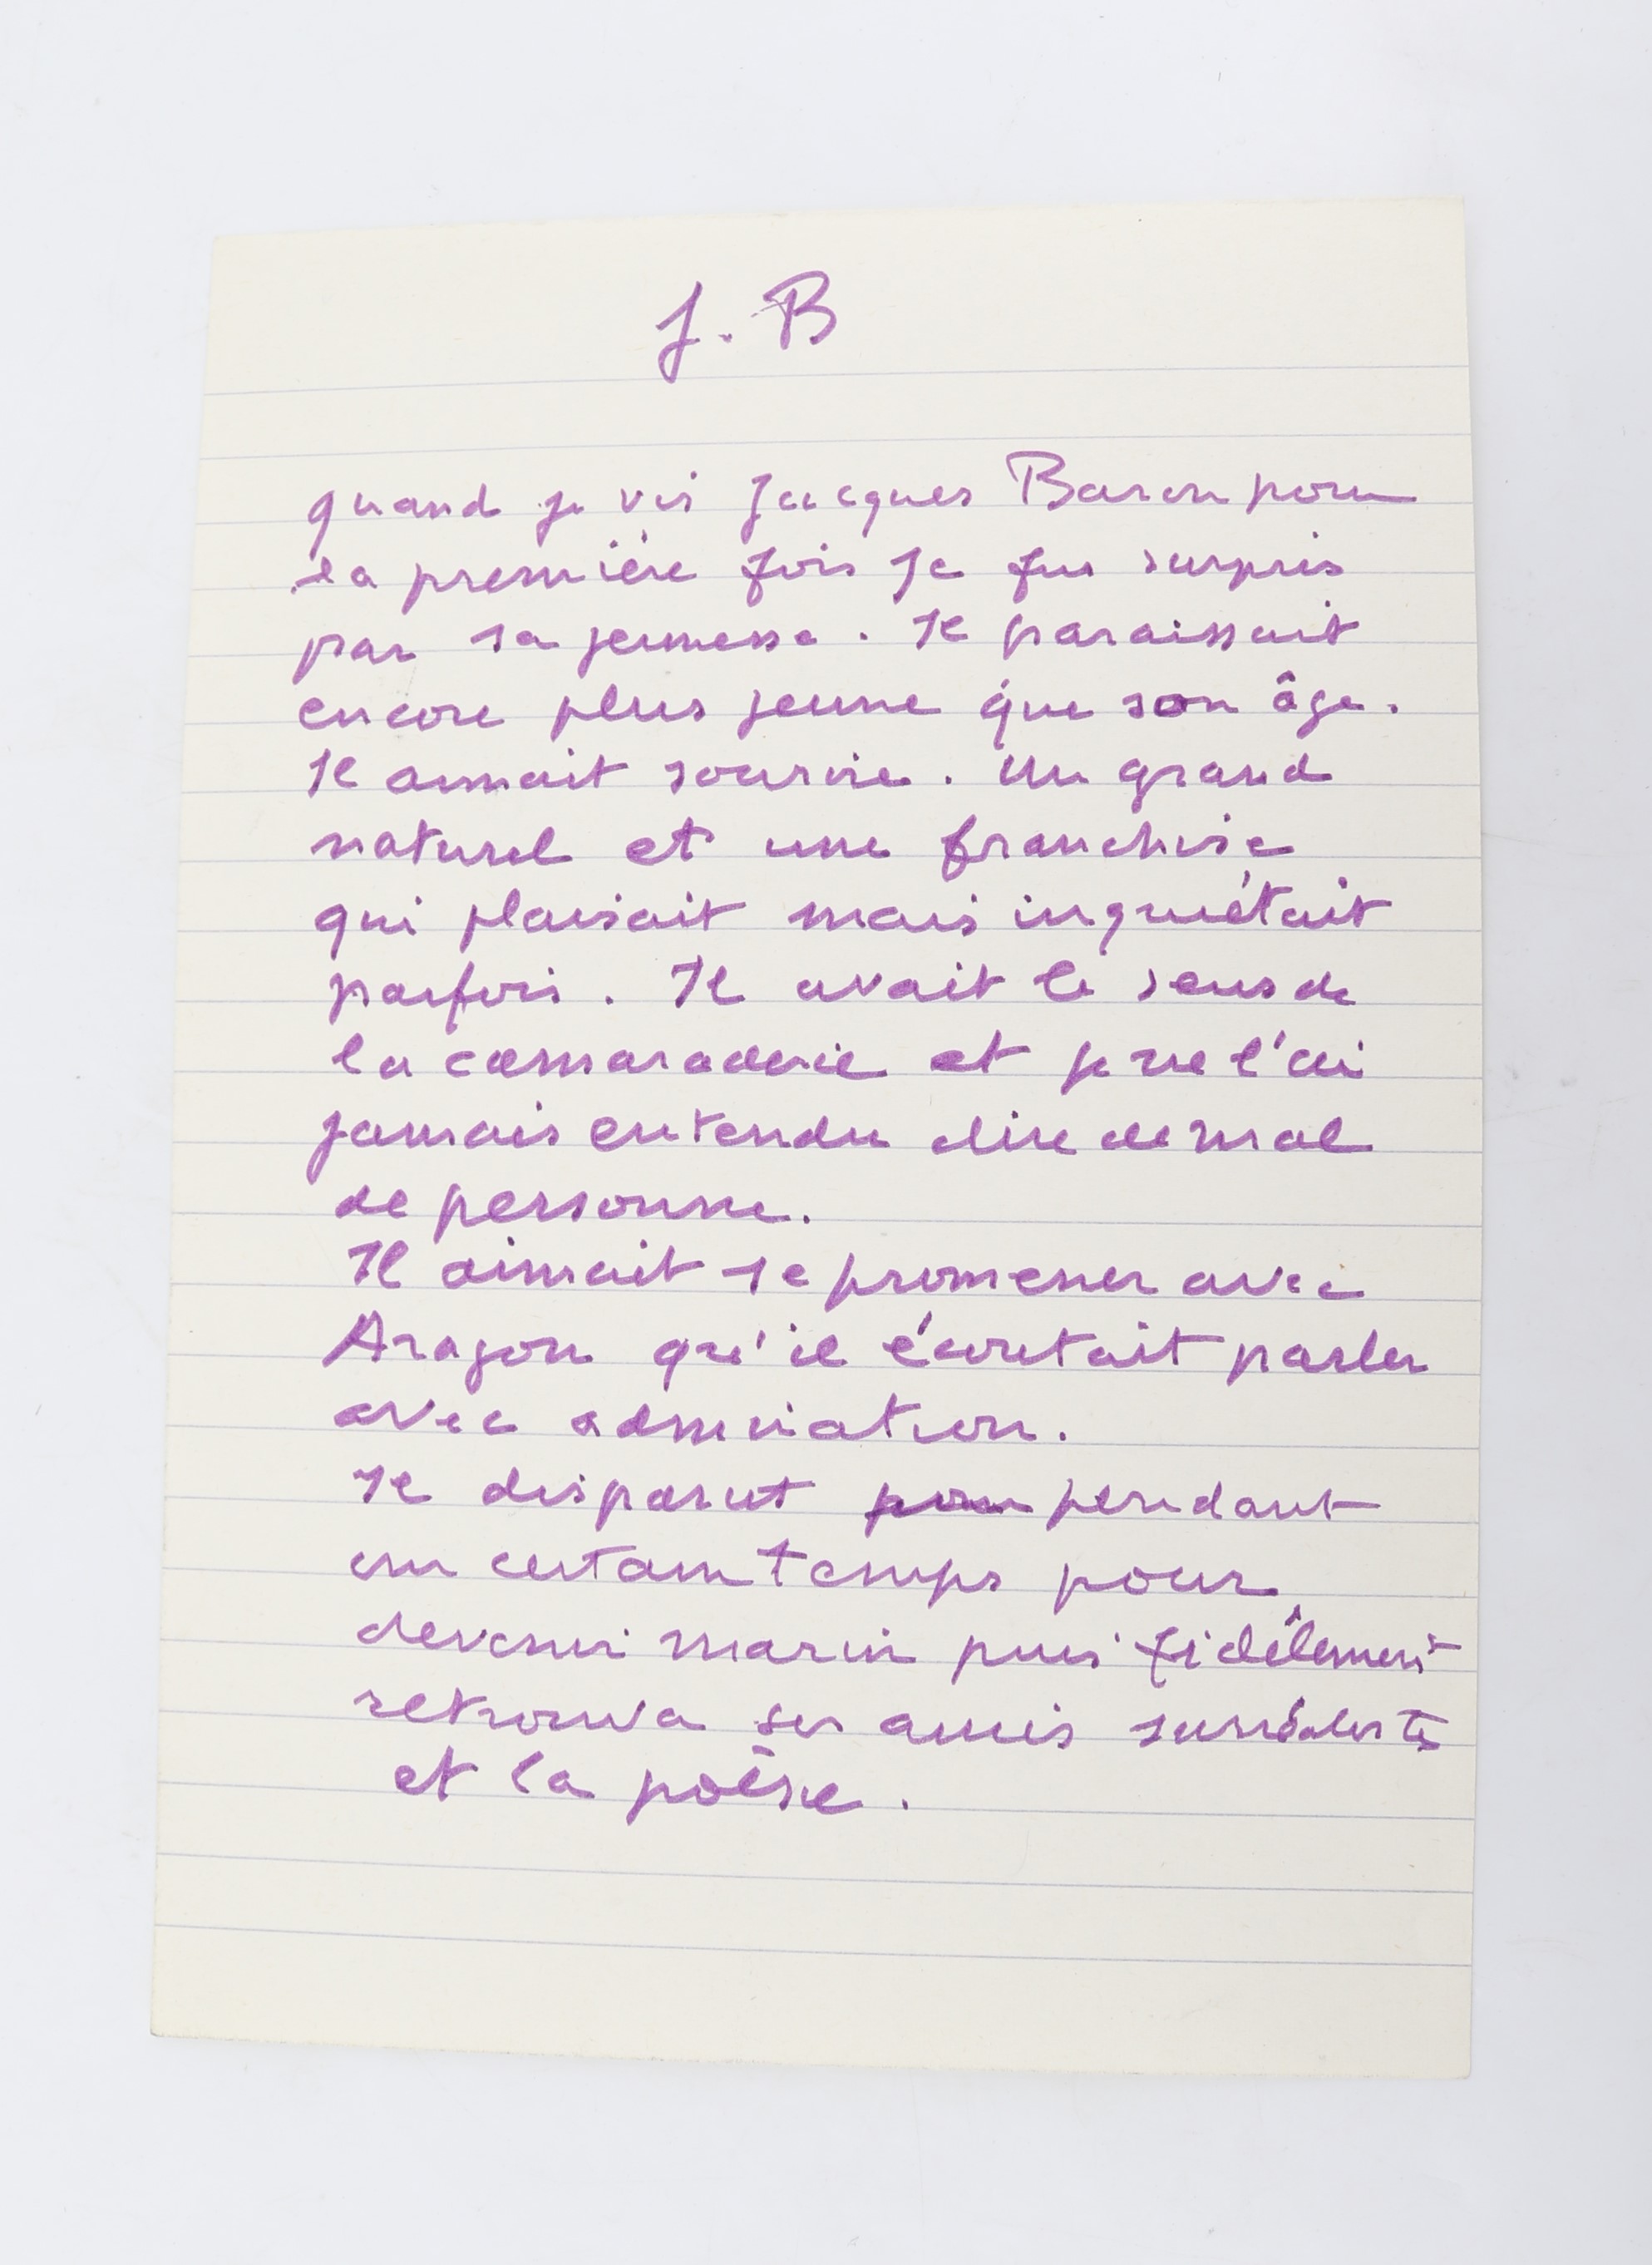 J. B
quand je vis Jacques Baron pour
la première fois je fus surpris
par sa jeunesse. Il paraissait
encore plus jeune que son âge.
Il aimait sourire. Un grand
naturel et une franchise
qui plaisait mais inquiétait
parfois. Il avait le sens de
la camaraderie et je ne l'ai
jamais entendu dire de mal
de personne.
Il aimait se promener avec
Aragon qu'il écoutait parler
avec admiration.
Il disparut pour pendant
un certain temps pour
devenir marin puis fidèlement
retrouva ses amis surréalistes
et la poésie.